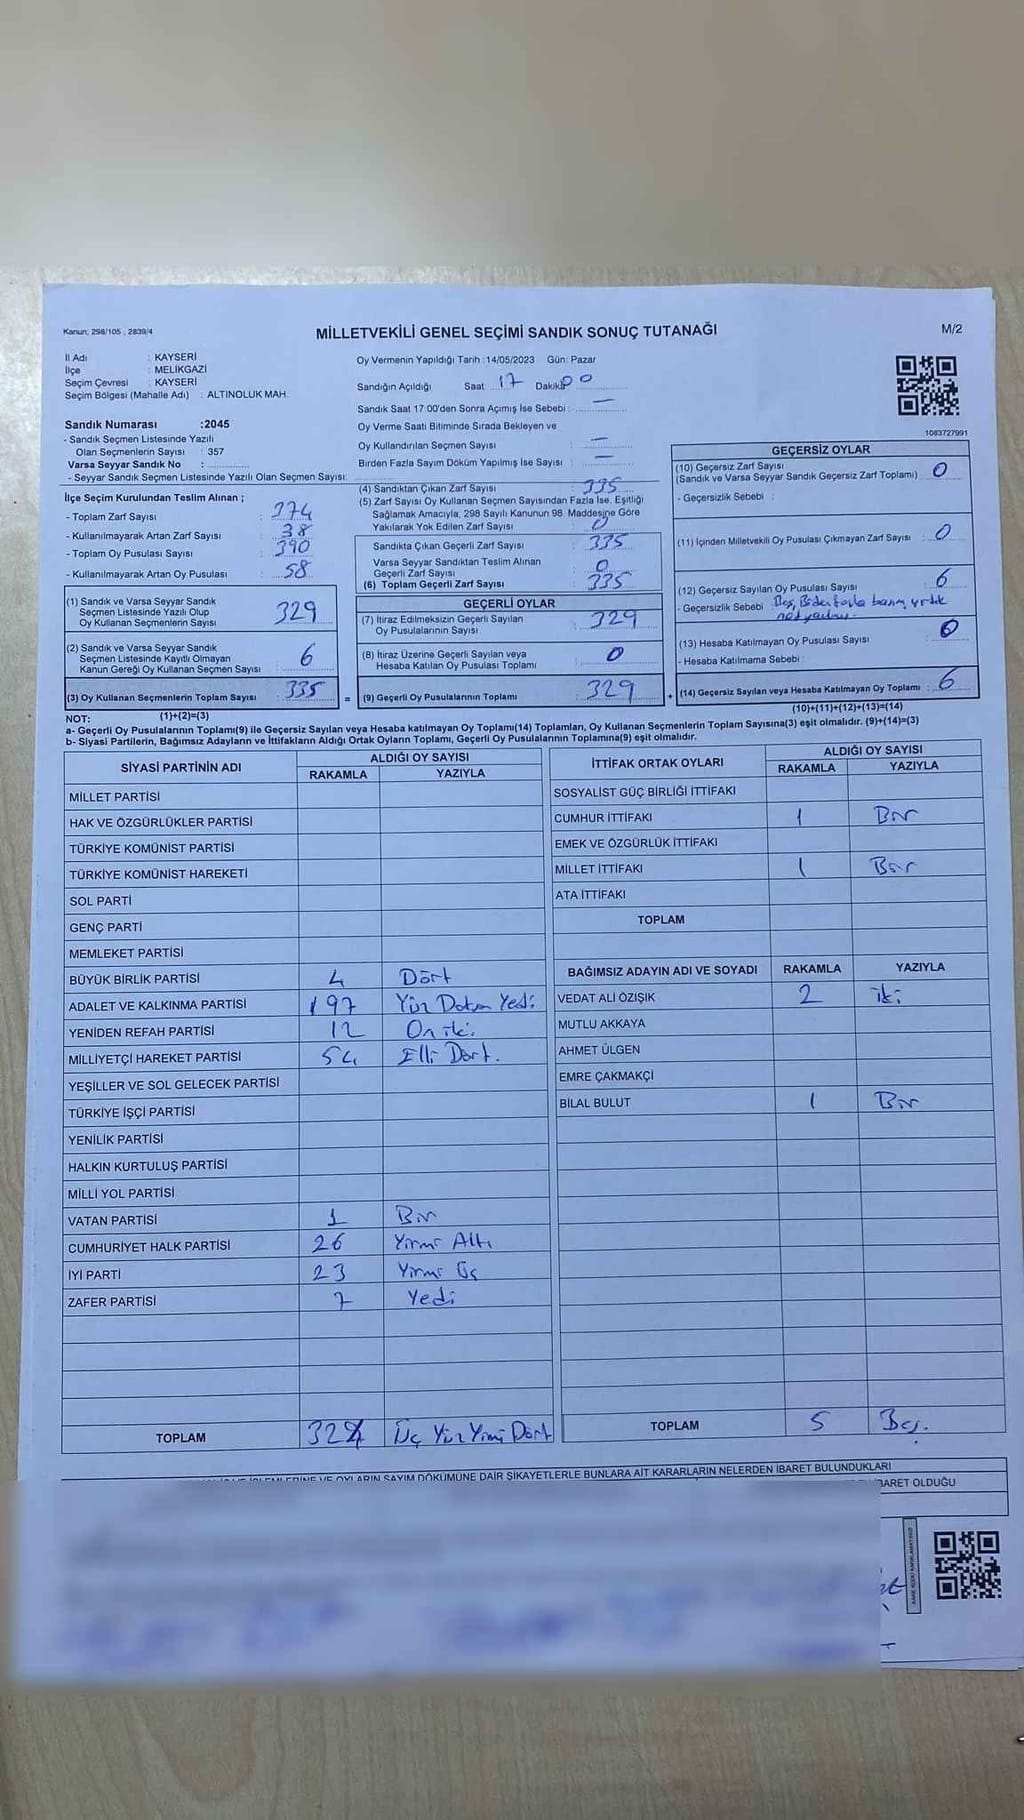 Kanun: 298/105 , 2839/4
MİLLETVEKİLİ GENEL SEÇİMİ SANDIK SONUÇ TUTANAĞI
M/2
İl Adı : KAYSERİ
İlçe : MELİKGAZİ
Seçim Çevresi : KAYSERİ
Seçim Bölgesi (Mahalle Adı) : ALTINOLUK MAH.
Sandık Numarası :2045
- Sandık Seçmen Listesinde Yazılı
Olan Seçmenlerin Sayısı : 357
Varsa Seyyar Sandık No :
- Seyyar Sandık Seçmen Listesinde Yazılı Olan Seçmen Sayısı:
Oy Vermenin Yapıldığı Tarih :14/05/2023 Gün: Pazar
Sandığın Açıldığı Saat: 17 Dakika 00
Sandık Saat 17:00'den Sonra Açımış İse Sebebi : —
Oy Verme Saati Bitiminde Sırada Bekleyen ve
Oy Kullandırılan Seçmen Sayısı : —
Birden Fazla Sayım Döküm Yapılmış İse Sayısı : —
1083727991
İlçe Seçim Kurulundan Teslim Alınan ;
- Toplam Zarf Sayısı : 374
- Kullanılmayarak Artan Zarf Sayısı : 38
- Toplam Oy Pusulası Sayısı : 390
- Kullanılmayarak Artan Oy Pusulası : 58
(1) Sandık ve Varsa Seyyar Sandık
Seçmen Listesinde Yazılı Olup
Oy Kullanan Seçmenlerin Sayısı 329
(2) Sandık ve Varsa Seyyar Sandık
Seçmen Listesinde Kayıtlı Olmayan
Kanun Gereği Oy Kullanan Seçmen Sayısı 6
(3) Oy Kullanan Seçmenlerin Toplam Sayısı : 335
(1)+(2)=(3)
(4) Sandıktan Çıkan Zarf Sayısı : 335
(5) Zarf Sayısı Oy Kullanan Seçmen Sayısından Fazla İse, Eşitliği
Sağlamak Amacıyla; 298 Sayılı Kanunun 98. Maddesine Göre
Yakılarak Yok Edilen Zarf Sayısı : 0
Sandıkta Çıkan Geçerli Zarf Sayısı : 335
Varsa Seyyar Sandıktan Teslim Alınan
Geçerli Zarf Sayısı : 0
(6) Toplam Geçerli Zarf Sayısı : 335
GEÇERLİ OYLAR
(7) İtiraz Edilmeksizin Geçerli Sayılan
Oy Pusulalarının Sayısı : 329
(8) İtiraz Üzerine Geçerli Sayılan veya
Hesaba Katılan Oy Pusulası Toplamı : 0
= (9) Geçerli Oy Pusulalarının Toplamı : 329
GEÇERSİZ OYLAR
(10) Geçersiz Zarf Sayısı
(Sandık ve Varsa Seyyar Sandık Geçersiz Zarf Toplamı) : 0
- Geçersizlik Sebebi :
(11) İçinden Milletvekili Oy Pusulası Çıkmayan Zarf Sayısı : 0
(12) Geçersiz Sayılan Oy Pusulası Sayısı : 6
- Geçersizlik Sebebi : Boş, Birden fazla basım, yırtık
(13) Hesaba Katılmayan Oy Pusulası Sayısı : 0
- Hesaba Katılmama Sebebi :
+ (14) Geçersiz Sayılan veya Hesaba Katılmayan Oy Toplamı : 6
(10)+(11)+(12)+(13)=(14)
NOT:
a- Geçerli Oy Pusulalarının Toplamı(9) ile Geçersiz Sayılan veya Hesaba katılmayan Oy Toplamı(14) Toplamları, Oy Kullanan Seçmenlerin Toplam Sayısına(3) eşit olmalıdır. (9)+(14)=(3)
b- Siyasi Partilerin, Bağımsız Adayların ve İttifakların Aldığı Ortak Oyların Toplamı, Geçerli Oy Pusulalarının Toplamına(9) eşit olmalıdır.
SİYASİ PARTİNİN ADI ALDIĞI OY SAYISI
RAKAMLA YAZIYLA
MİLLET PARTİSİ
HAK VE ÖZGÜRLÜKLER PARTİSİ
TÜRKİYE KOMÜNİST PARTİSİ
TÜRKİYE KOMÜNİST HAREKETİ
SOL PARTİ
GENÇ PARTİ
MEMLEKET PARTİSİ
BÜYÜK BİRLİK PARTİSİ 4 Dört
ADALET VE KALKINMA PARTİSİ 197 Yüz Doksan Yedi
YENİDEN REFAH PARTİSİ 12 On iki
MİLLİYETÇİ HAREKET PARTİSİ 54 Elli Dört.
YEŞİLLER VE SOL GELECEK PARTİSİ
TÜRKİYE İŞÇİ PARTİSİ
YENİLİK PARTİSİ
HALKIN KURTULUŞ PARTİSİ
MİLLİ YOL PARTİSİ
VATAN PARTİSİ 1 Bir
CUMHURİYET HALK PARTİSİ 26 Yirmi Altı
İYİ PARTİ 23 Yirmi Üç
ZAFER PARTİSİ 7 Yedi
TOPLAM 324 Üç Yüz Yirmi Dört
İTTİFAK ORTAK OYLARI ALDIĞI OY SAYISI
RAKAMLA YAZIYLA
SOSYALİST GÜÇ BİRLİĞİ İTTİFAKI
CUMHUR İTTİFAKI 1 Bir
EMEK VE ÖZGÜRLÜK İTTİFAKI
MİLLET İTTİFAKI 1 Bir
ATA İTTİFAKI
TOPLAM
BAĞIMSIZ ADAYIN ADI VE SOYADI RAKAMLA YAZIYLA
VEDAT ALİ ÖZIŞIK 2 iki
MUTLU AKKAYA
AHMET ÜLGEN
EMRE ÇAKMAKÇİ
BİLAL BULUT 1 Bir
TOPLAM 5 Beş.
OYLARIN SAYIM DÖKÜMÜNE DAİR ŞİKAYETLERLE BUNLARA AİT KARARLARIN NELERDEN İBARET BULUNDUKLARI
OLDUĞU